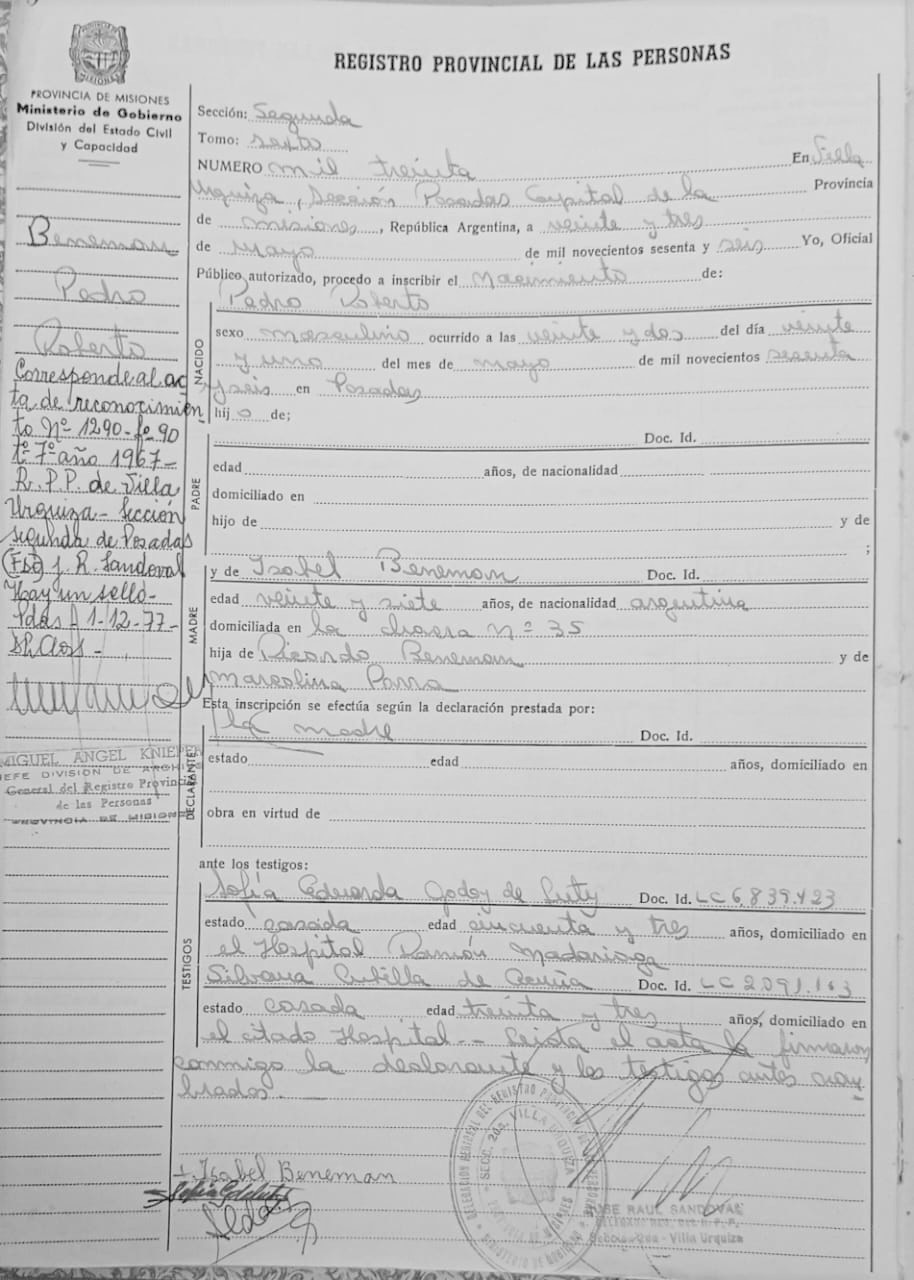 REGISTRO PROVINCIAL DE LAS PERSONAS
PROVINCIA DE MISIONES
Ministerio de Gobierno
División del Estado Civil
y Capacidad
Beneman
Pedro
Roberto
Corresponde al ac
ta de reconocimien
to Nº 1290-fº 90
tº 7º año 1967-
R.P.P. de Villa
Urquiza - Sección
segunda de Posadas
(Fdo) J. R. Sandoval
Hay un sello-
Pdas - 1-12-77-
MIGUEL ANGEL KNIEPER
JEFE DIVISION DE ARCHI
General del Registro Provincial
de las Personas
PROVINCIA DE MISIONES
Sección: Segunda
Tomo: sexto
NUMERO mil treinta En Villa
Urquiza, Sección Posadas Capital de la Provincia
de misiones, República Argentina, a veinte y tres
de mayo de mil novecientos sesenta y seis Yo, Oficial
Público autorizado, procedo a inscribir el nacimiento de:
NACIDO
Pedro Roberto
sexo masculino ocurrido a las veinte y dos del día veinte
y uno del mes de mayo de mil novecientos sesenta
y seis en Posadas
hijo de;
PADRE
Doc. Id.
edad años, de nacionalidad
domiciliado en
hijo de y de
;
MADRE
y de Isabel Beneman Doc. Id.
edad veinte y siete años, de nacionalidad argentina
domiciliada en la chacra Nº 35
hija de Ricardo Beneman y de
Marcolina Parra
Esta inscripción se efectúa según la declaración prestada por:
DECLARANTE
la madre Doc. Id.
estado edad años, domiciliado en
obra en virtud de
ante los testigos:
TESTIGOS
Sofía Eduarda Godoy de Doc. Id. LC 6,839.423
estado casada edad cincuenta y tres años, domiciliado en
el Hospital Ramón Madariaga
Silvana de Acuña Doc. Id. LC 2.091.163
estado casada edad treinta y tres años, domiciliado en
el citado Hospital-- el acta la firmaron
conmigo la declarante y los testigos antes nom
brados.-
Isabel Beneman
DELEGACION REGIONAL DEL REGISTRO PROVINCIAL DE LAS PERSONAS
SECC. 2da. VILLA URQUIZA
PROVINCIA DE MISIONES
JOSE RAUL SANDOVAL
Villa Urquiza